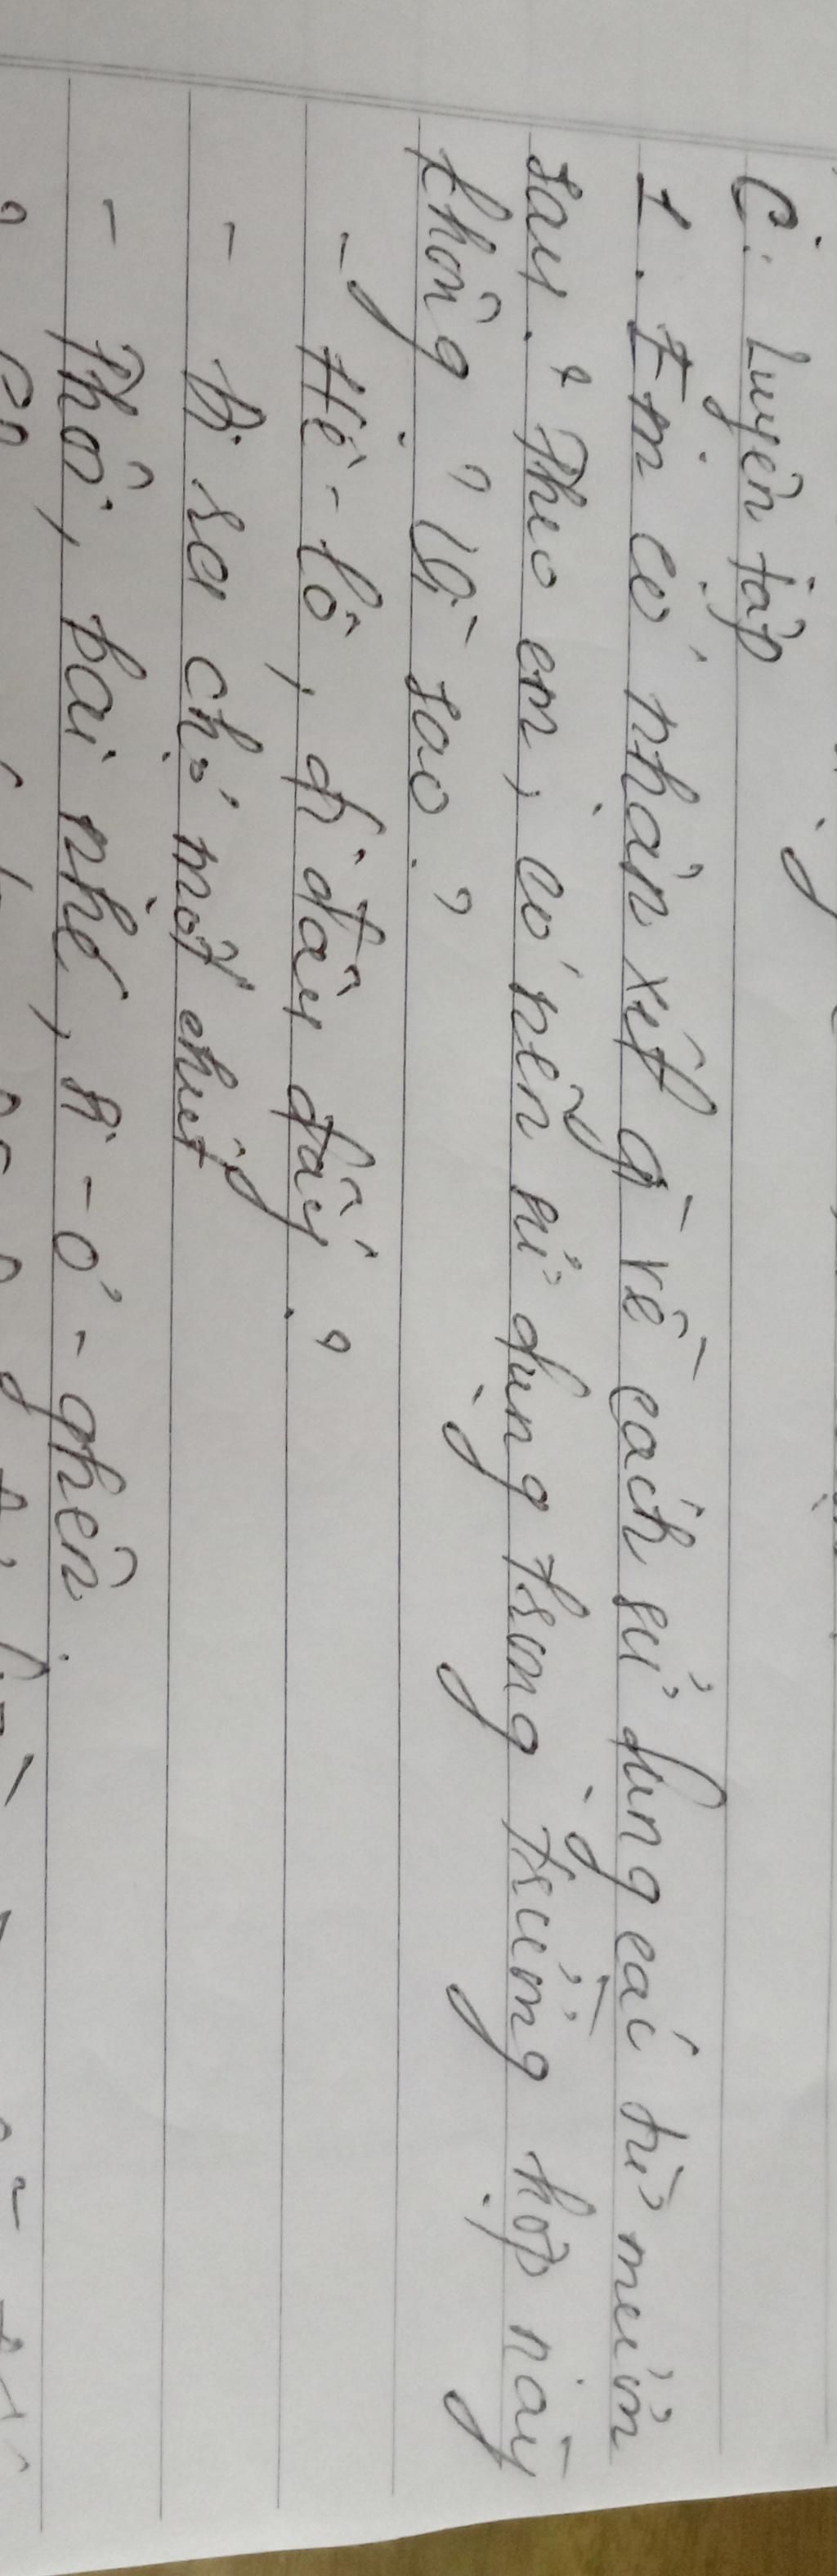 C. Luyện tập
1. Em có nhận xét gì về cách sử dụng các từ mượn
sau? Theo em, có nên sử dụng trong trường hợp này
không? Vì sao?
- Hê-lô, đi đâu đấy?
- Đi ra chợ một chút
- Thôi, bai nhé, si-ô-ghên.